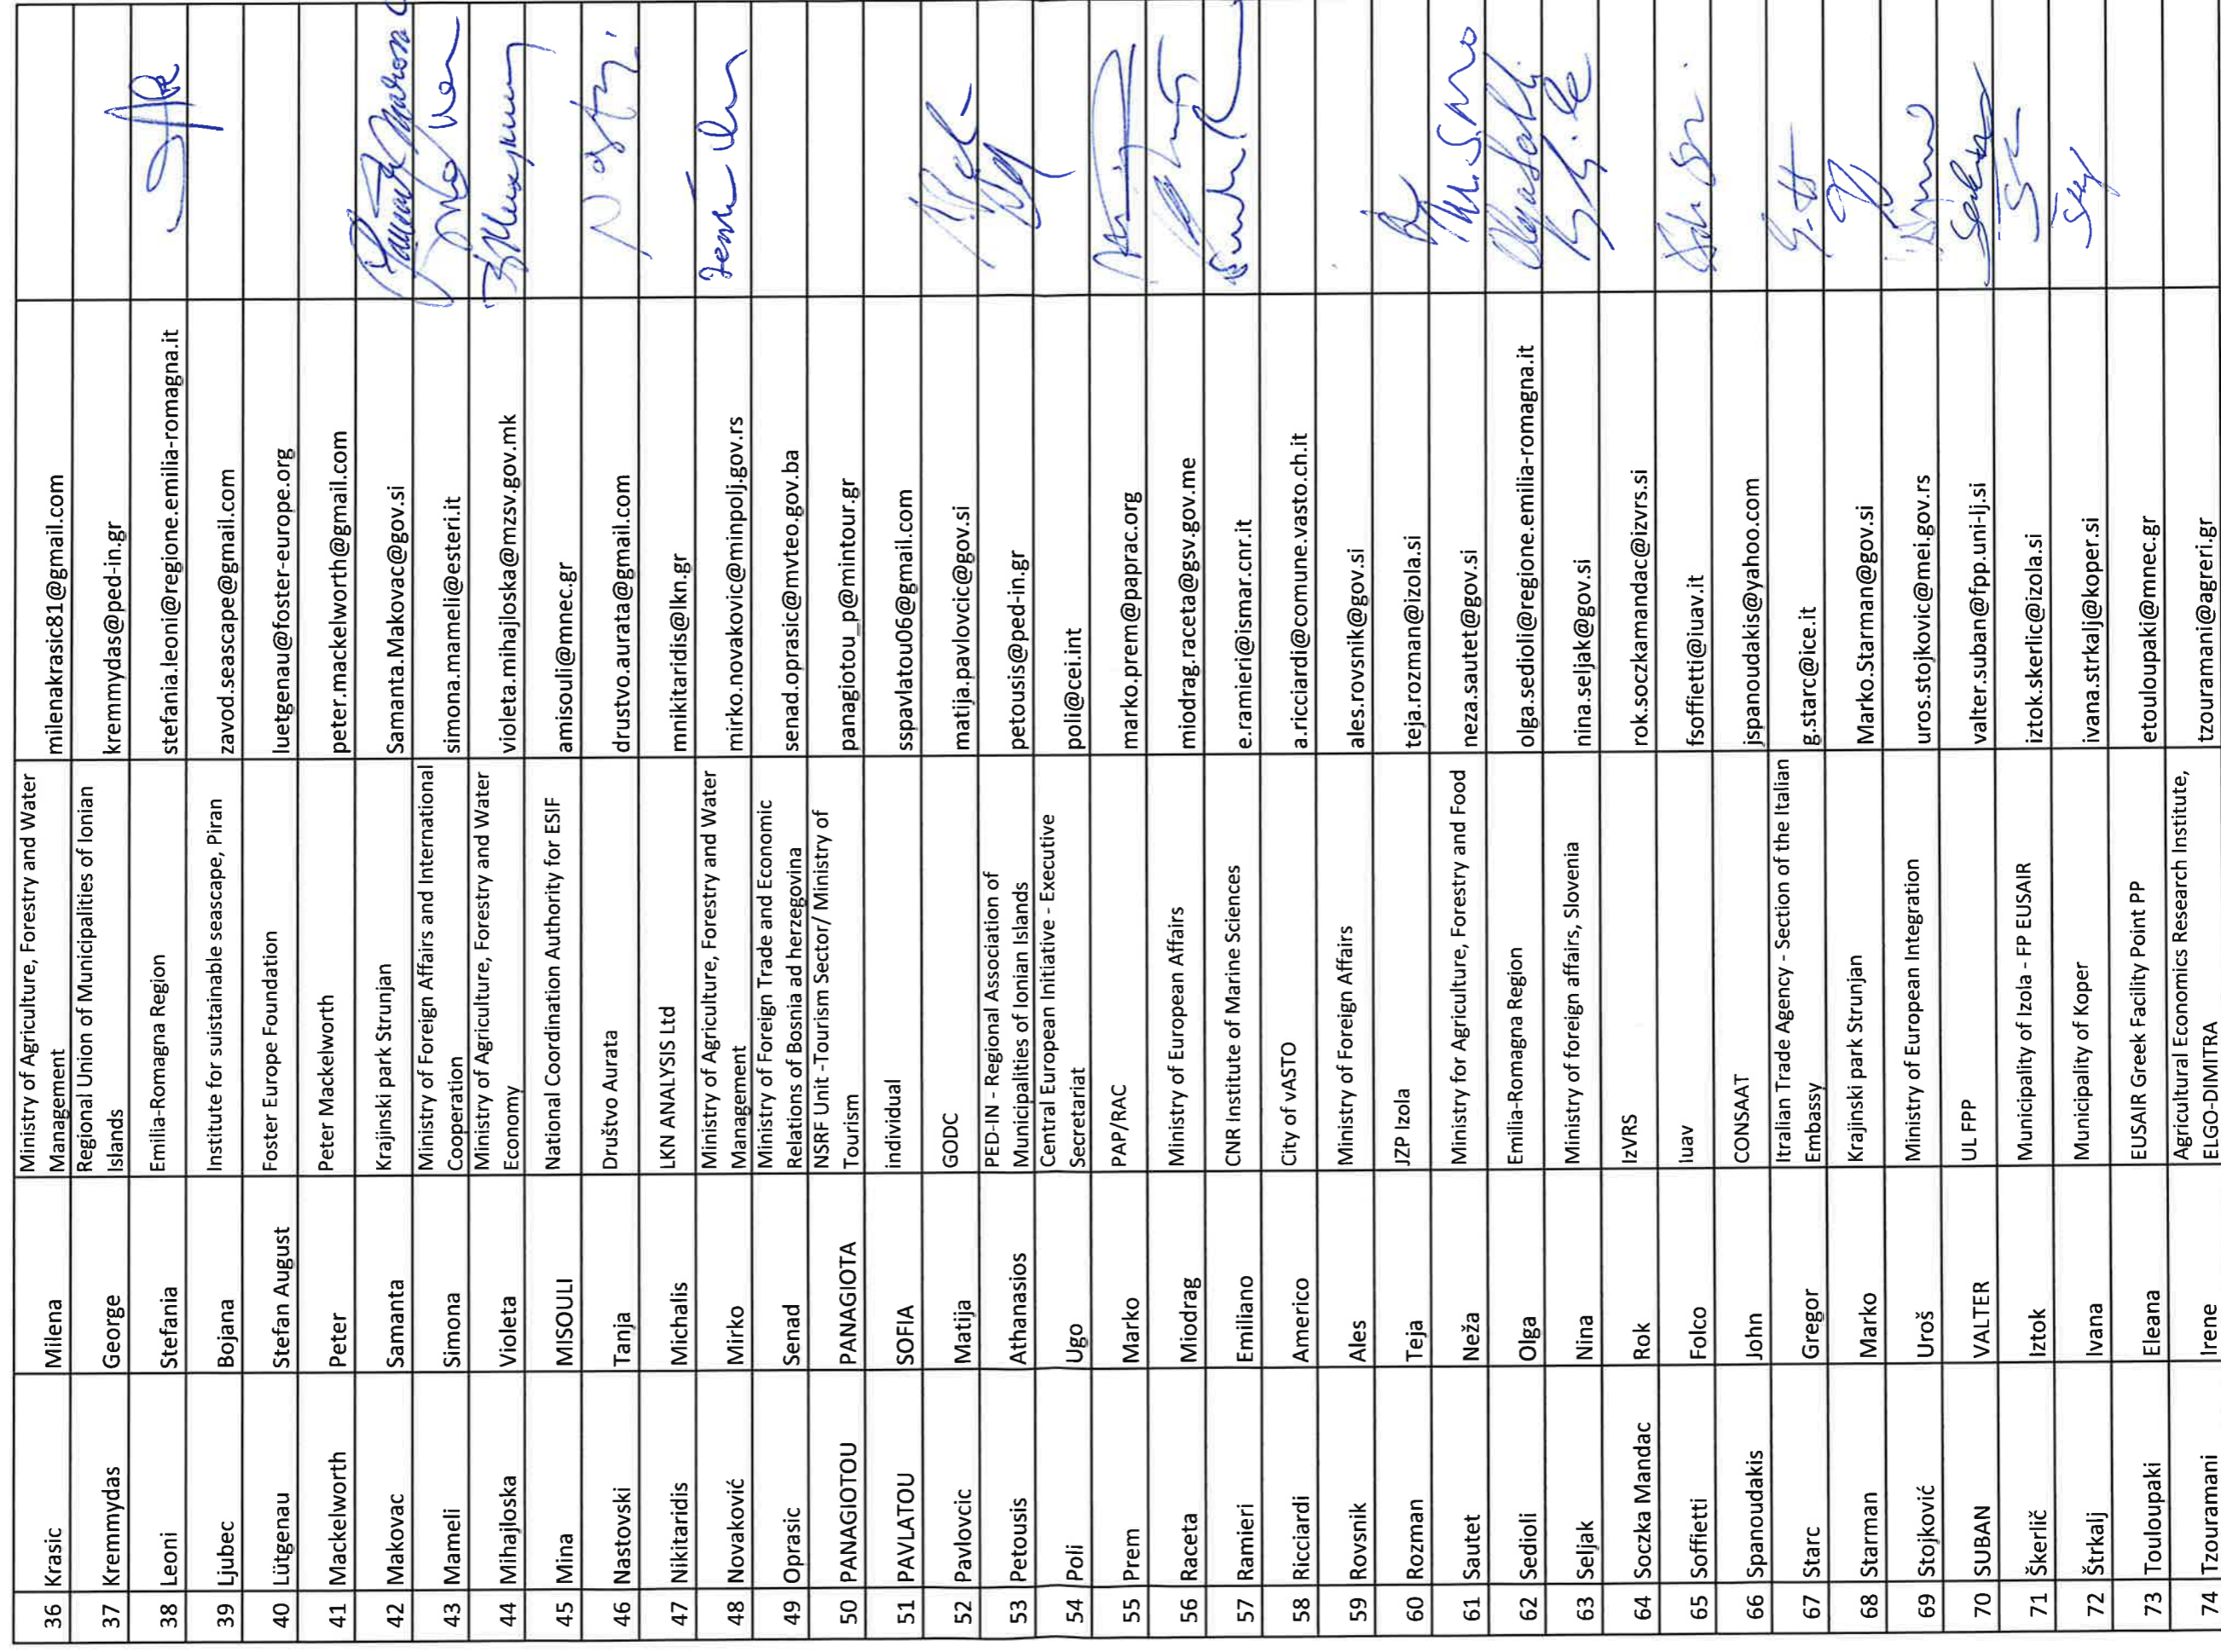 36 Krasic Milena Ministry of Agriculture, Forestry and Water milenakrasic81@gmail.com
Management
37 Kremmydas George Regional Union of Municipalities of Ionian kremmydas@ped-in.gr
Islands
38 Leoni Stefania Emilia-Romagna Region stefania.leoni@regione.emilia-romagna.it
39 Ljubec Bojana Institute for sustainable seascape, Piran zavod.seascape@gmail.com
40 Lütgenau Stefan August Foster Europe Foundation luetgenau@foster-europe.org
41 Mackelworth Peter Peter Mackelworth peter.mackelworth@gmail.com
42 Makovac Samanta Krajinski park Strunjan Samanta.Makovac@gov.si
43 Mameli Simona Ministry of Foreign Affairs and International simona.mameli@esteri.it
Cooperation
44 Mihajloska Violeta Ministry of Agriculture, Forestry and Water violeta.mihajloska@mzsv.gov.mk
Economy
45 Mina MISOULI National Coordination Authority for ESIF amisouli@mnec.gr
46 Nastovski Tanja Društvo Aurata drustvo.aurata@gmail.com
47 Nikitaridis Michalis LKN ANALYSIS Ltd mnikitaridis@lkn.gr
48 Novaković Mirko Ministry of Agriculture, Forestry and Water mirko.novakovic@minpolj.gov.rs
Management
49 Oprasic Senad Ministry of Foreign Trade and Economic senad.oprasic@mvteo.gov.ba
Relations of Bosnia ad herzegovina
50 PANAGIOTOU PANAGIOTA NSRF Unit -Tourism Sector/ Ministry of panagiotou_p@mintour.gr
Tourism
51 PAVLATOU SOFIA individual sspavlatou06@gmail.com
52 Pavlovcic Matija GODC matija.pavlovcic@gov.si
53 Petousis Athanasios PED-IN - Regional Association of petousis@ped-in.gr
Municipalities of Ionian Islands
54 Poli Ugo Central European Initiative - Executive poli@cei.int
Secretariat
55 Prem Marko PAP/RAC marko.prem@paprac.org
56 Raceta Miodrag Ministry of European Affairs miodrag.raceta@gsv.gov.me
57 Ramieri Emiliano CNR Institute of Marine Sciences e.ramieri@ismar.cnr.it
58 Ricciardi Americo City of vASTO a.ricciardi@comune.vasto.ch.it
59 Rovsnik Ales Ministry of Foreign Affairs ales.rovsnik@gov.si
60 Rozman Teja JZP Izola teja.rozman@izola.si
61 Sautet Neža Ministry for Agriculture, Forestry and Food neza.sautet@gov.si
62 Sedioli Olga Emilia-Romagna Region olga.sedioli@regione.emilia-romagna.it
63 Seljak Nina Ministry of foreign affairs, Slovenia nina.seljak@gov.si
64 Soczka Mandac Rok IzVRS rok.soczkamandac@izvrs.si
65 Soffietti Folco Iuav fsoffietti@iuav.it
66 Spanoudakis John CONSAAT jspanoudakis@yahoo.com
67 Starc Gregor Itralian Trade Agency - Section of the Italian g.starc@ice.it
Embassy
68 Starman Marko Krajinski park Strunjan Marko.Starman@gov.si
69 Stojković Uroš Ministry of European Integration uros.stojkovic@mei.gov.rs
70 SUBAN VALTER UL FPP valter.suban@fpp.uni-lj.si
71 Škerlič Iztok Municipality of Izola - FP EUSAIR iztok.skerlic@izola.si
72 Štrkalj Ivana Municipality of Koper ivana.strkalj@koper.si
73 Touloupaki Eleana EUSAIR Greek Facility Point PP etouloupaki@mnec.gr
74 Tzouramani Irene Agricultural Economics Research Institute, tzouramani@agreri.gr
ELGO-DIMITRA